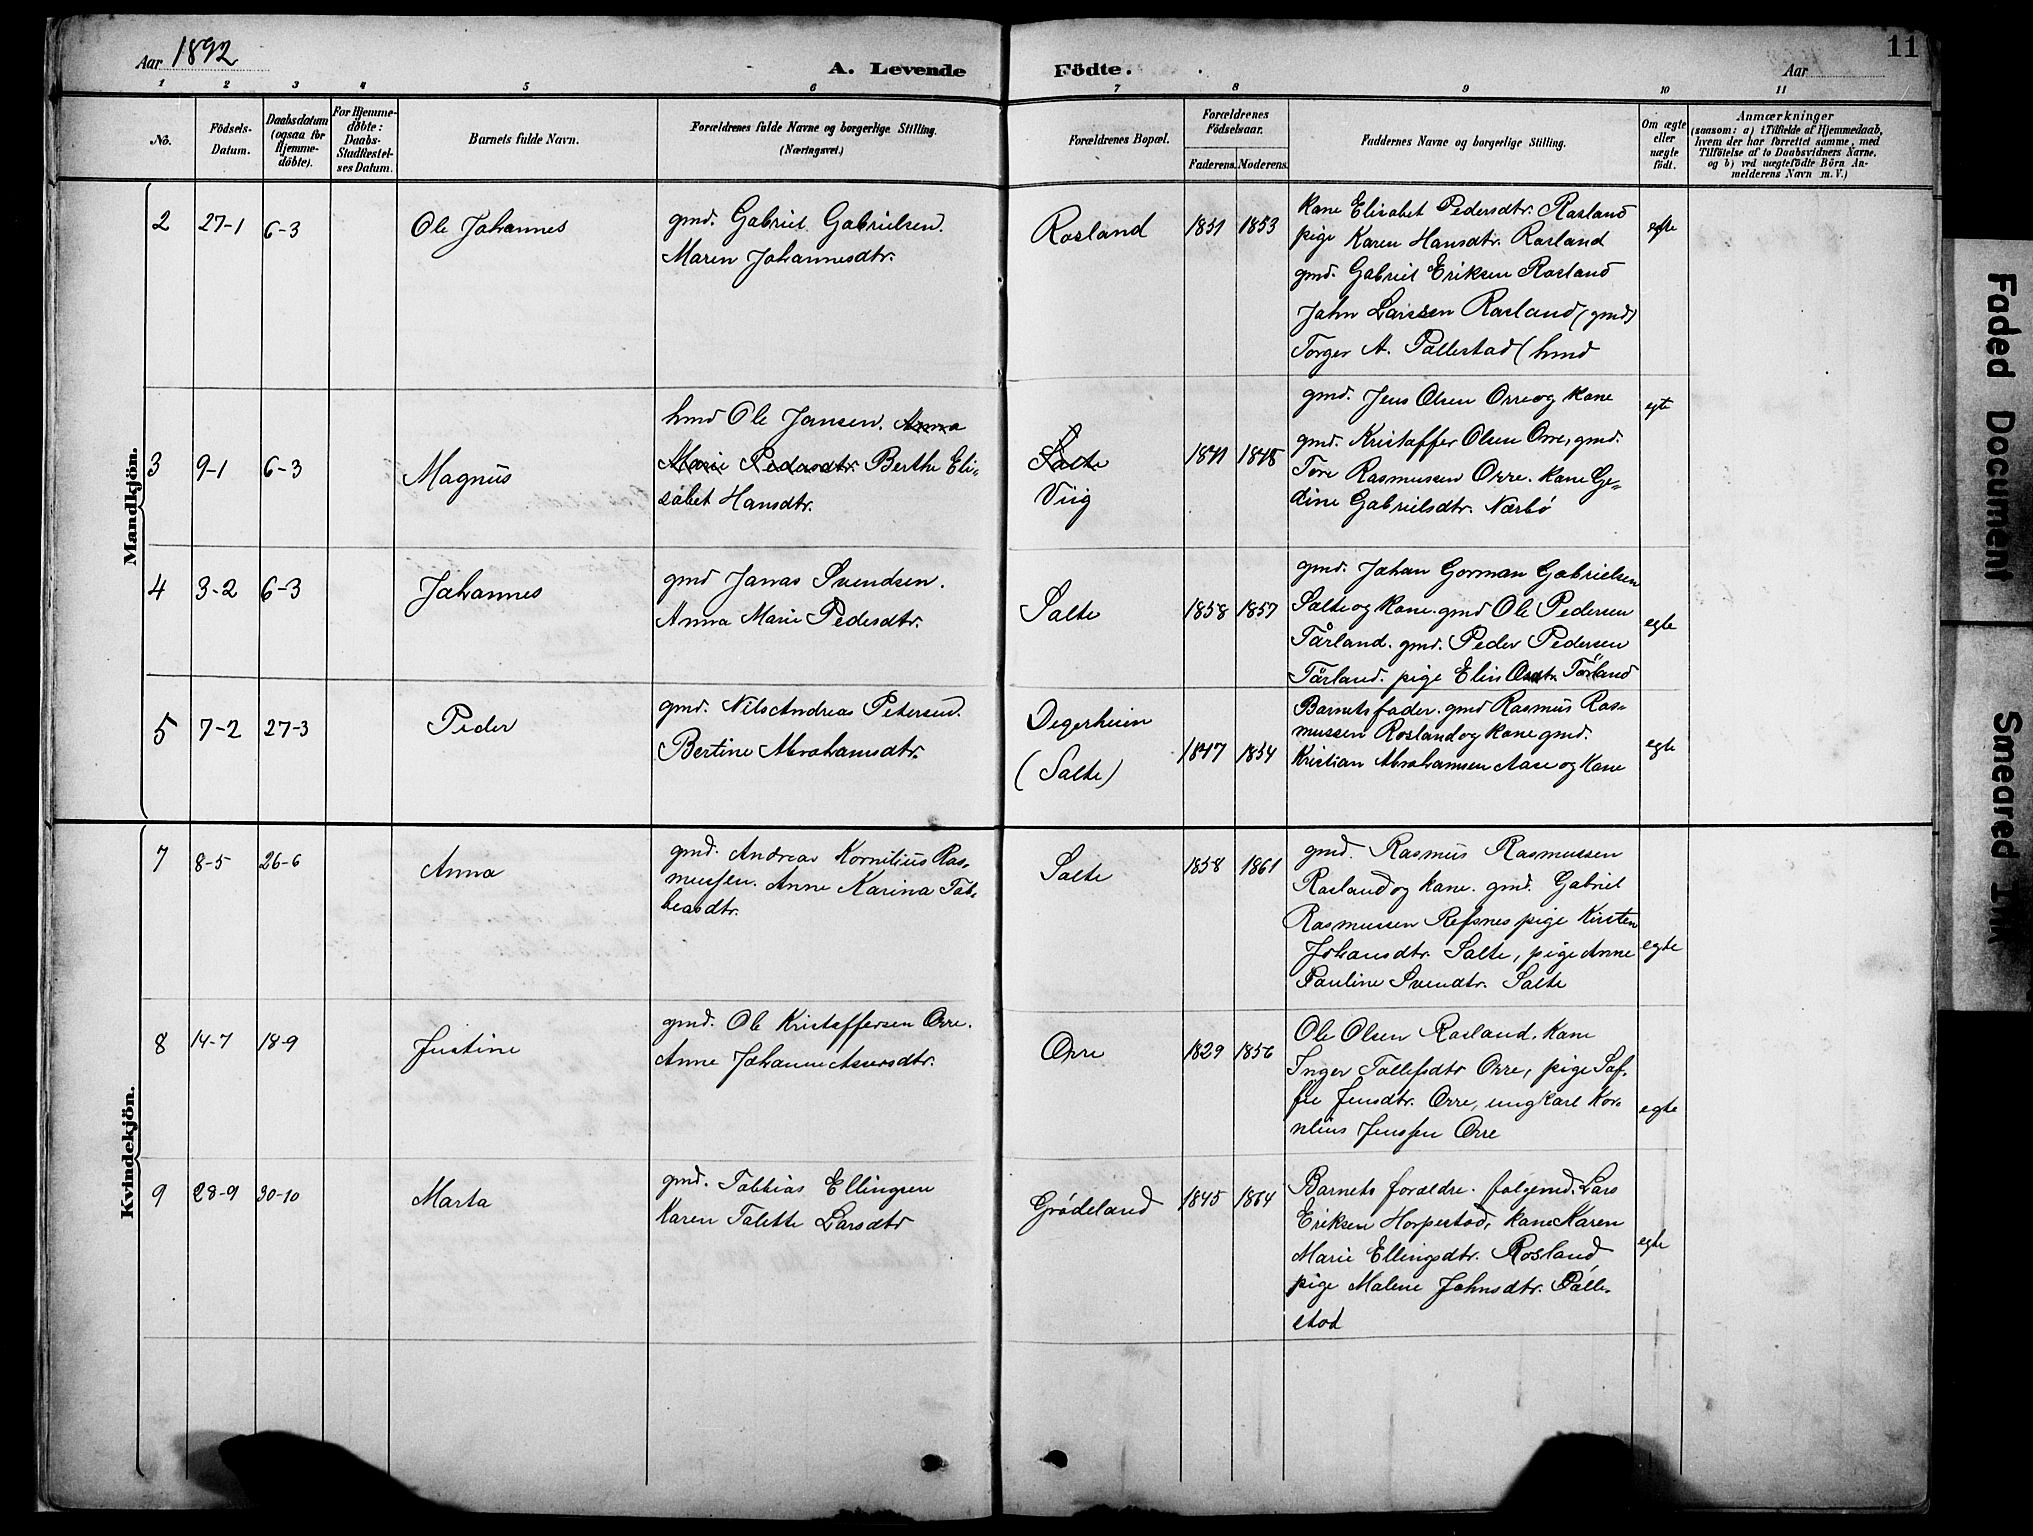 Aar 1892
A. Levende Födte.
Aar
11
1 2 3 4 5 6 7 8 9 10 11
No.
Födsels-
Datum.
Daabsdatum
(ogsaa for
Hjemme-
döbte).
For Hjemme-
döbte:
Daabs-
Stadfæstel-
ses Datum.
Barnets fulde Navn.
Forældrenes fulde Navne og borgerlige Stilling.
(Næringsvei.)
Forældrenes Bopæl.
Forældrenes
Födselsaar.
Faderens.
Moderens.
Faddernes Navne og borgerlige Stilling.
Om ægte
eller
uægte
født.
Anmærkninger
(saasom: a) i Tilfælde af Hjemmedaab,
hvem der har forrettet samme, med
Tilföielse af to Daabsvidners Navne.
og b) ved uægtefödte Börn An-
melderens Navn m. V.)
Mandkjön.
2 27-1 6-3
Ole Johannes
gmd. Gabriel Gabrielsen.
Maren Johannesdtr.
Rosland
1851 1853
Kane Elisabet Pedersdtr. Rosland
pige Karen Hansdtr. Rosland
gmd. Gabriel Eriksen Rosland
John Larssen Rosland (gmd)
Torger A. Pollestad (hmd
egte
3 9-1 6-3
Magnus
hmd Ole Jansen. Anna
Marie Pedersdtr. Berthe Eli-
sabet Hansdtr.
Salte
Viig
1841 1848
gmd. Jens Olsen Orre og Kane
gmd. Kristoffer Olsen Orre, gmd.
Tore Rasmussen Orre. Kane Ge-
dine Gabrielsdtr. Nærbø
egte
4 3-2 6-3
Johannes
gmd Jonas Svendsen.
Anna Marie Pedesdtr.
Salte
1858 1857
gmd. Johan Gorman Gabrielsen
Salte og Kane. gmd Ole Pedersen
Tårland. gmd. Peder Pedersen
Tårland. pige Elin Tårland
egte
5 7-2 27-3
Peder
gmd. Nils Andreas Petersen.
Bertine Abrahamsdtr.
Degerheien
(Salte)
1847 1854
Barnets fader. gmd Rasmus Ras-
mussen Rosland og Kane gmd.
Kristian Abrahamsen Aase og Kane
egte
Kvindekjön.
7 8-5 26-6
Anna
gmd. Andreas Kornilius Ras-
mussen. Anne Karina Tob-
beasdtr.
Salte
1858 1861
gmd. Rasmus Rasmussen
Rosland og Kane. gmd. Gabriel
Rasmussen Refsnes pige Kirsten
Johansdtr. Salte, pige Anne
Pauline Svendtr. Salte
egte
8 14-7 18-9
Justine
gmd. Ole Kristoffersen Orre.
Anne Johanne Assersdtr.
Orre
1829 1856
Ole Olsen Rosland. Kane
Inger Tollefsdtr Orre, pige Sof-
fie Jensdtr. Orre, ungkarl Kor-
nlius Jenssen Orre
egte
9 28-9 30-10
Marta
gmd. Tobbias Ellingsen
Karen Talette Larsdtr
Grødeland
1845 1864
Barnets foraldre. folgemd. Lars
Eriksen Horpestad, Kane Karen
Marie Ellingsdtr. Rosland
pige Malene Johnsdtr. Polle-
stad
egte
Faded Document
Smeared Ink